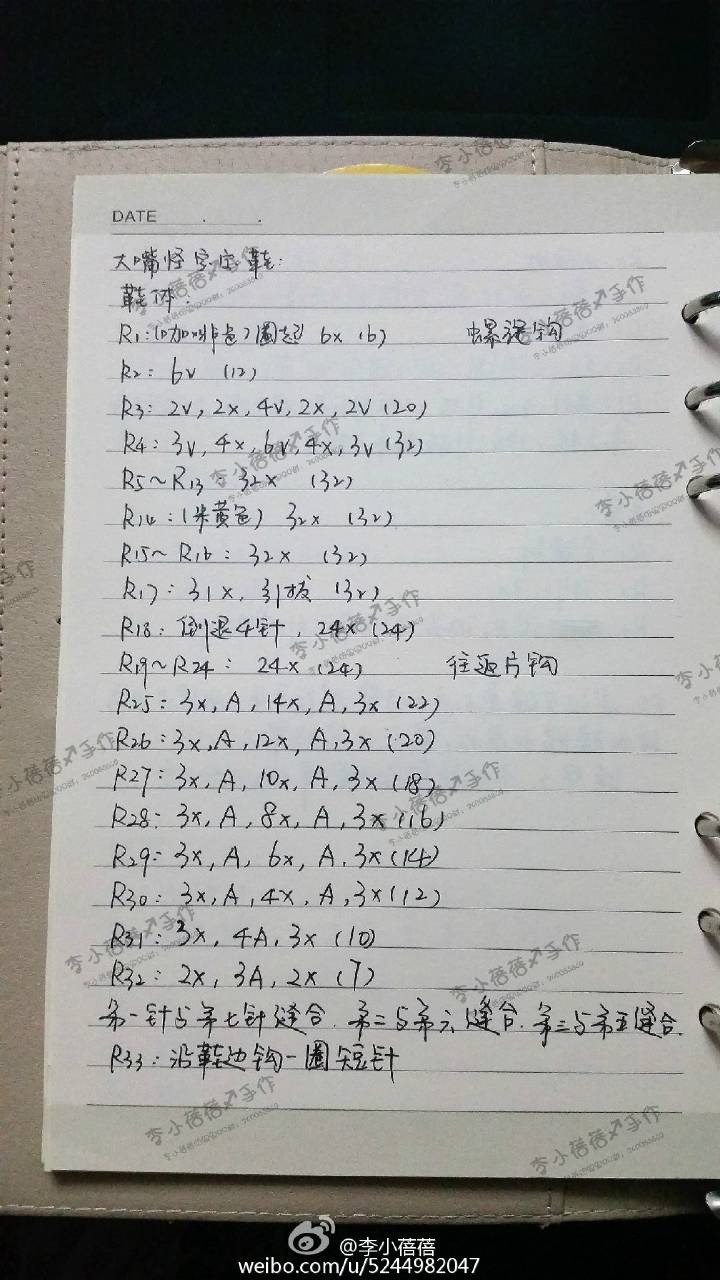 DATE . .
大嘴怪宝宝鞋:
鞋体:
R1:(咖啡色)圈起 6x (6) 螺旋钩
R2: 6v (12)
R3: 2v, 2x, 4v, 2x, 2v (20)
R4: 3v, 4x, 6v, 4x, 3v (32)
R5~R13: 32x (32)
R14: (米黄色) 32x (32)
R15~R16: 32x (32)
R17: 31x, 引拔 (32)
R18: 倒退4针, 24x (24)
R19~R24: 24x (24) 往返片钩
R25: 3x, A, 14x, A, 3x (22)
R26: 3x, A, 12x, A, 3x (20)
R27: 3x, A, 10x, A, 3x (18)
R28: 3x, A, 8x, A, 3x (16)
R29: 3x, A, 6x, A, 3x (14)
R30: 3x, A, 4x, A, 3x (12)
R31: 3x, 4A, 3x (10)
R32: 2x, 3A, 2x (7)
第一针与第七针缝合. 第二与第六缝合. 第三与第五缝合.
R33: 沿鞋边钩一圈短针
@李小蓓蓓
weibo.com/u/5244982047